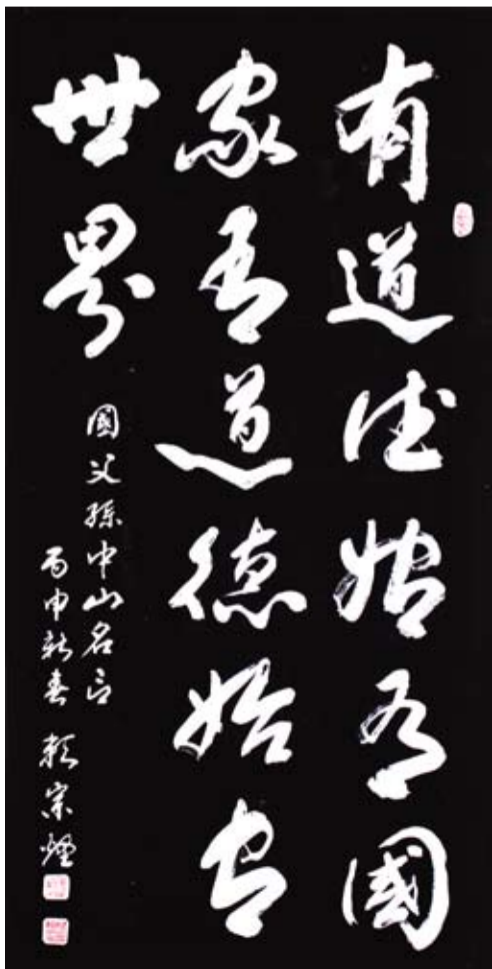 有道德始有國
家有道德始成
世界
國父孫中山名言
丙申新春 賴宗煙